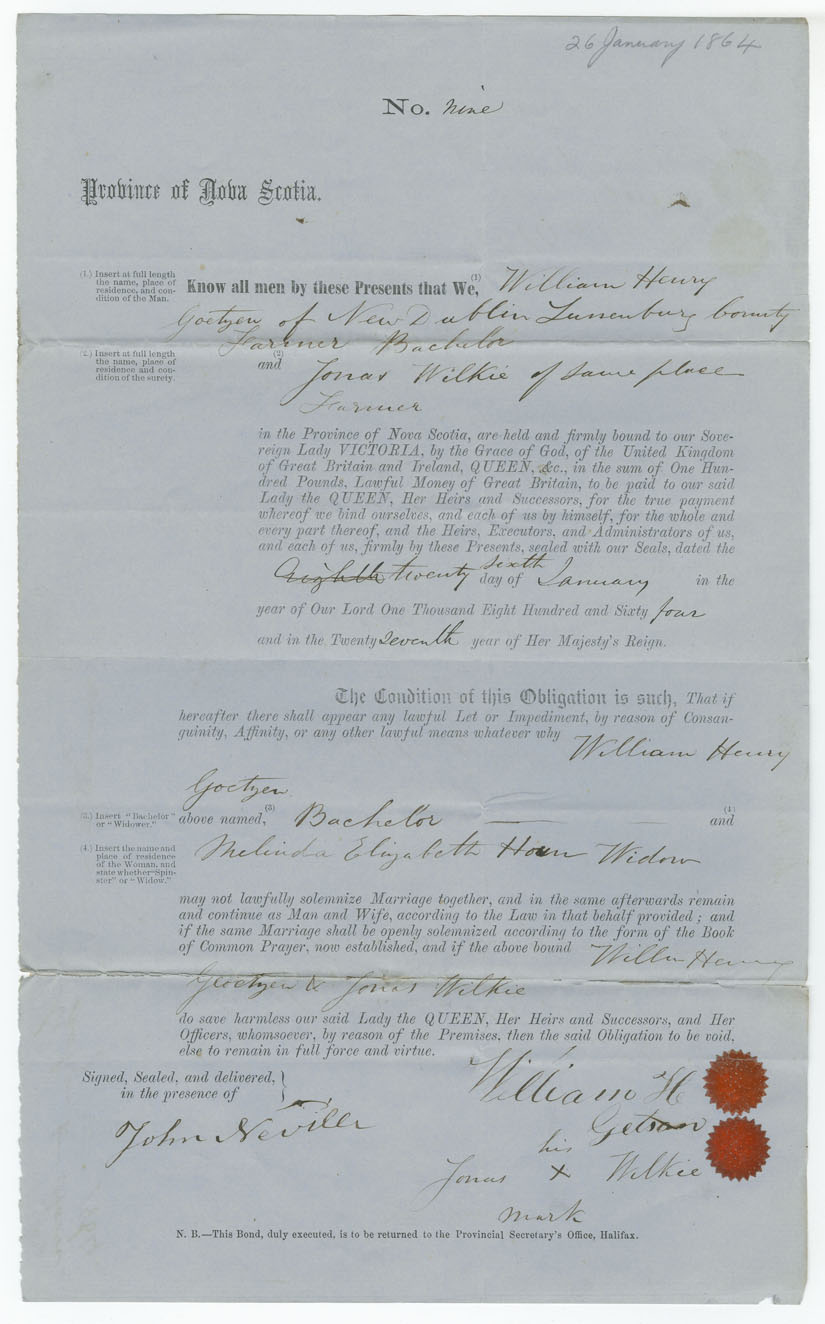 26 January 1864
No. nine
Province of Nova Scotia.
(1.) Insert at full length
the name, place of
residence, and con-
dition of the Man.
Know all men by these Presents that We, (1) William Henry
Goetzen of New Dublin Lunenburg County
Farmer Bachelor
(2.) Insert at full length
the name, place of
residence and con-
dition of the surety.
and (2) Jonas Wilkie of same place
Farmer
in the Province of Nova Scotia, are held and firmly bound to our Sove-
reign Lady VICTORIA, by the Grace of God, of the United Kingdom
of Great Britain and Ireland, QUEEN, &c., in the sum of One Hun-
dred Pounds, Lawful Money of Great Britain, to be paid to our said
Lady the QUEEN, Her Heirs and Successors, for the true payment
whereof we bind ourselves, and each of us by himself, for the whole and
every part thereof, and the Heirs, Executors, and Administrators of us,
and each of us, firmly by these Presents, sealed with our Seals, dated the
Eighth twenty sixth day of January in the
year of Our Lord One Thousand Eight Hundred and Sixty four
and in the Twenty seventh year of Her Majesty's Reign.
The Condition of this Obligation is such, That if
hereafter there shall appear any lawful Let or Impediment, by reason of Consan-
guinity, Affinity, or any other lawful means whatever why
William Henry
Goetzen
(3.) Insert "Bachelor"
or "Widower."
above named, (3) Bachelor and (4)
(4.) Insert the name and
place of residence
of the Woman, and
state whether "Spin-
ster" or "Widow."
Melinda Elizabeth Widow
may not lawfully solemnize Marriage together, and in the same afterwards remain
and continue as Man and Wife, according to the Law in that behalf provided; and
if the same Marriage shall be openly solemnized according to the form of the Book
of Common Prayer, now established, and if the above bound Willm Henry
Goetzen & Jonas Wilkie
do save harmless our said Lady the QUEEN, Her Heirs and Successors, and Her
Officers, whomsoever, by reason of the Premises, then the said Obligation to be void,
else to remain in full force and virtue.
Signed, Sealed, and delivered, }
in the presence of
John Neville
William H
Getson
his
Jonas X Wilkie
mark
N. B.—This Bond, duly executed, is to be returned to the Provincial Secretary's Office, Halifax.